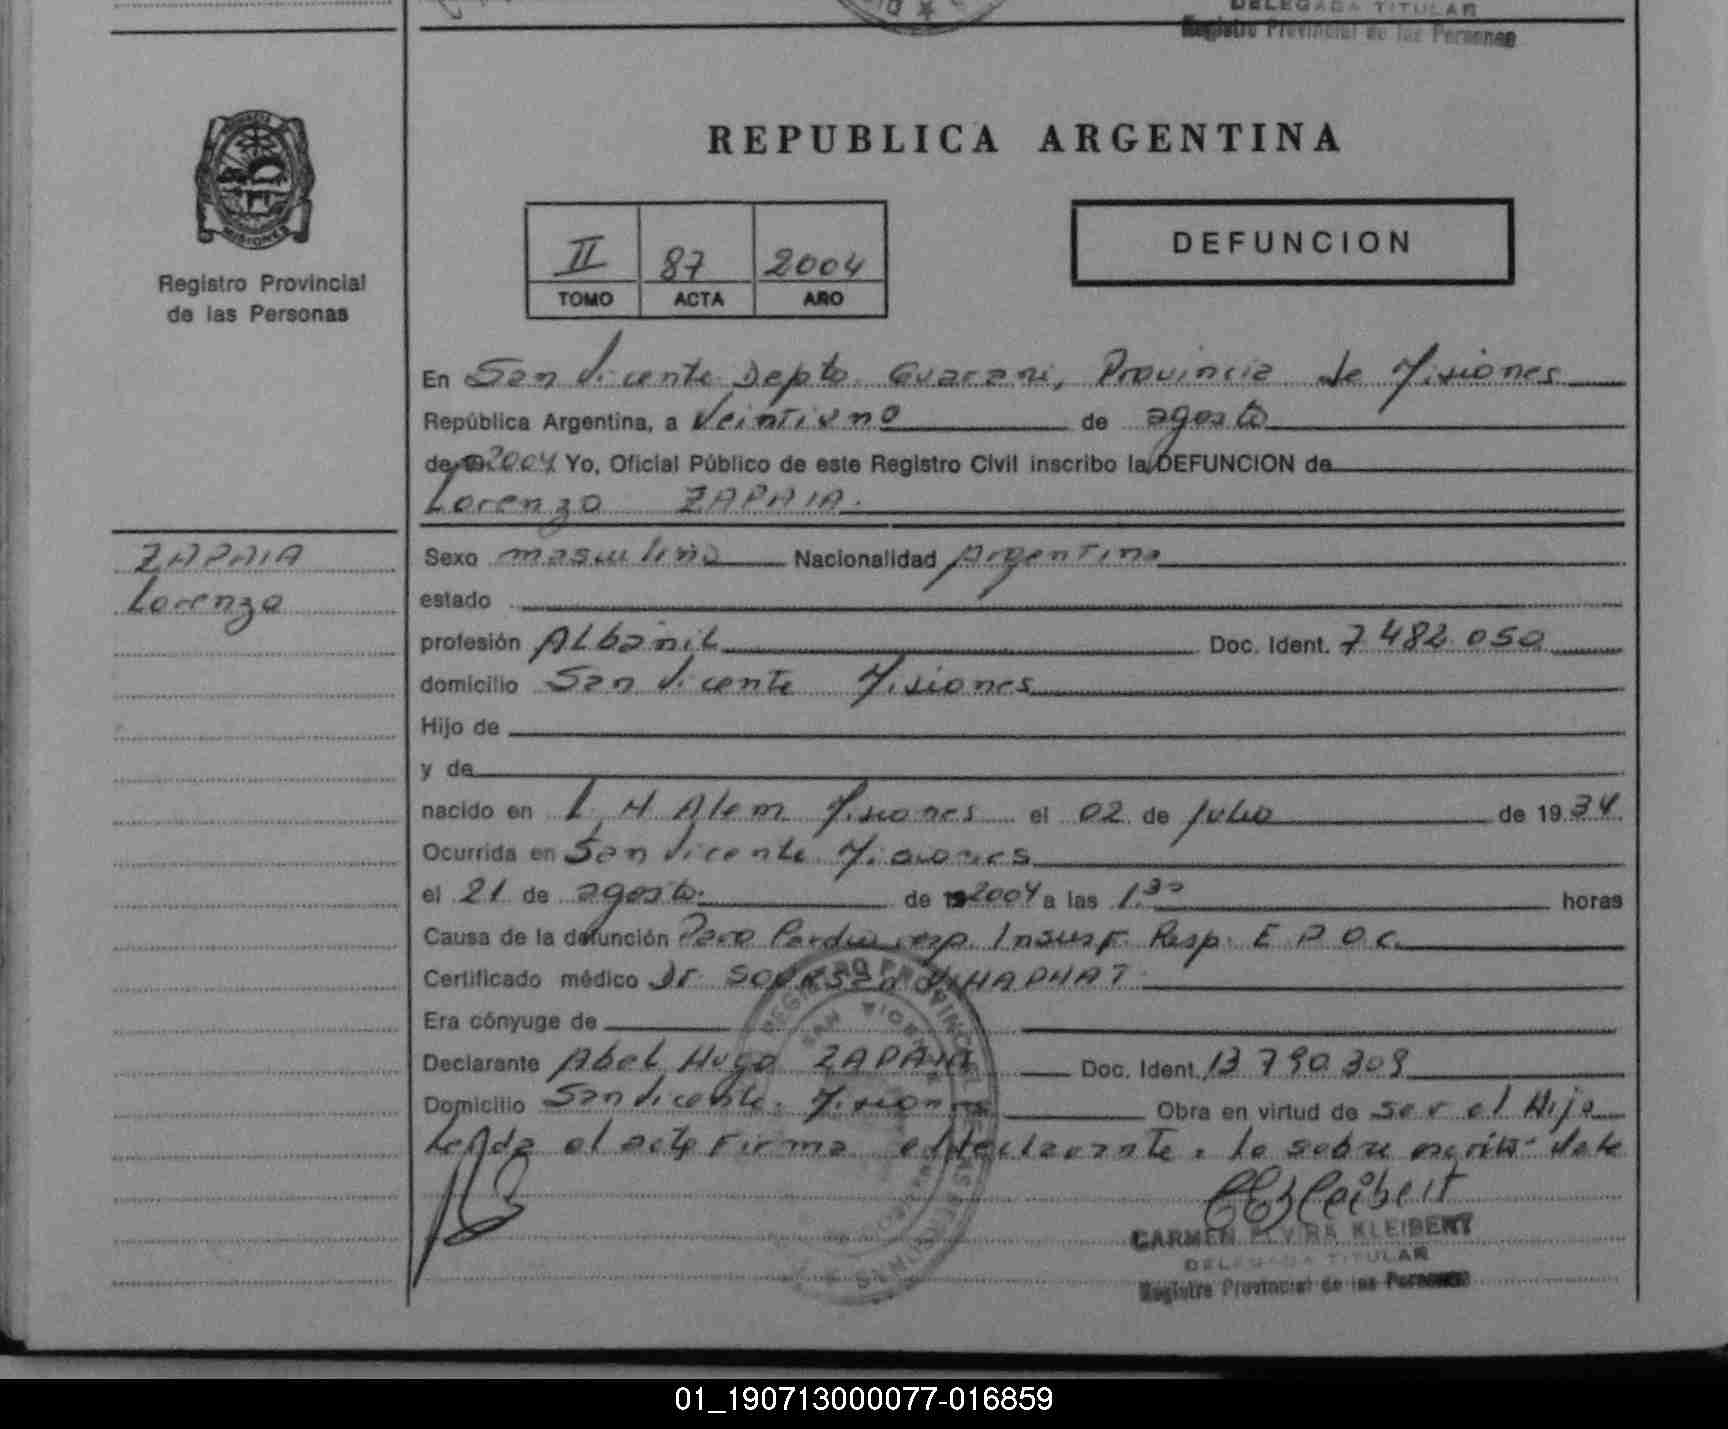 DELEGADA TITULAR
Registro Provincial de las Personas
MISIONES
Registro Provincial
de las Personas
REPUBLICA ARGENTINA
II 87 2004
TOMO ACTA AÑO
DEFUNCION
En San Vicente Depto Guarani, Provincia de Misiones
República Argentina, a Veintiuno de agosto
de 2004 Yo, Oficial Público de este Registro Civil inscribo la DEFUNCION de
Lorenzo ZAPAIA.
ZAPAIA
Lorenzo
Sexo masculino Nacionalidad Argentina
estado
profesión ALbañiL Doc. Ident. 7 482 050
domicilio San Vicente Misiones
Hijo de
y de
nacido en L N Alem Misiones el 02 de Julio de 1934.
Ocurrida en San Vicente Misiones
el 21 de agosto de 2004 a las 1.30 horas
Causa de la defunción Paro Cardio resp. Insuf. Resp. E P O C.
Certificado médico Dr
Era cónyuge de
Declarante Abel Hugo ZAPAIA Doc. Ident. 13 790 309
Domicilio San Vicente. Misiones Obra en virtud de ser el Hijo
Leida el acta Firma el declarante. lo sobre escrito Vale
CARMEN ELVIRA KLEIBERT
DELEGADA TITULAR
Registro Provincial de las Personas
01_190713000077-016859